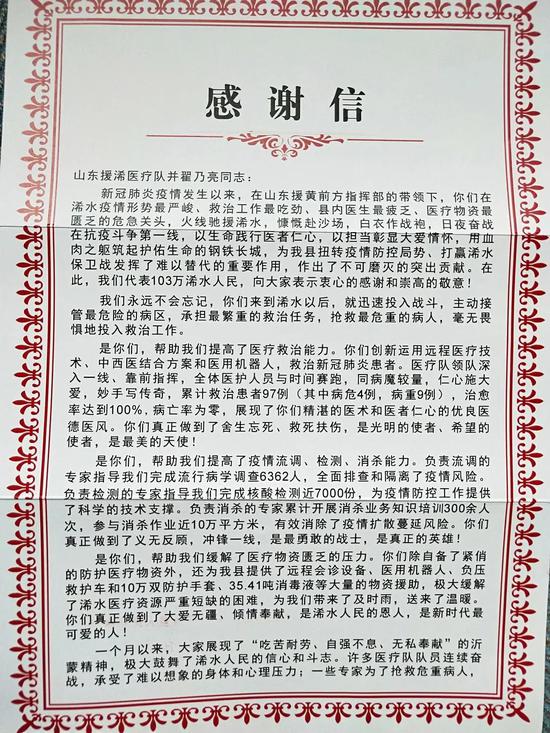 感谢信
山东援浠医疗队并翟乃亮同志：
新冠肺炎疫情发生以来，在山东援黄前方指挥部的带领下，你们在
浠水疫情形势最严峻、救治工作最吃劲、县内医生最疲乏、医疗物资最
匮乏的危急关头，火线驰援浠水，慷慨赴沙场，白衣作战袍，日夜奋战
在抗疫斗争第一线，以生命践行医者仁心，以担当彰显大爱情怀，用血
肉之躯筑起护佑生命的钢铁长城，为我县扭转疫情防控局势、打赢浠水
保卫战发挥了难以替代的重要作用，作出了不可磨灭的突出贡献。在
此，我们代表103万浠水人民，向大家表示衷心的感谢和崇高的敬意！
我们永远不会忘记，你们来到浠水以后，就迅速投入战斗，主动
接管最危险的病区，承担最繁重的救治任务，抢救最危重的病人，毫无畏
惧地投入救治工作。
是你们，帮助我们提高了医疗救治能力。你们创新运用远程医疗技
术、中西医结合方案和医用机器人，救治新冠肺炎患者。医疗队领队深
入一线、靠前指挥，全体医护人员与时间赛跑，同病魔较量，仁心施大
爱，妙手写传奇，累计救治患者97例（其中病危4例，病重9例），治愈
率达到100%，病亡率为零，展现了你们精湛的医术和医者仁心的优良医
德医风。你们真正做到了舍生忘死、救死扶伤，是光明的使者、希望的
使者，是最美的天使！
是你们，帮助我们提高了疫情流调、检测、消杀能力。负责流调的
专家指导我们完成流行病学调查6362人，全面排查和隔离了疫情风险。
负责检测的专家指导我们完成核酸检测近7000份，为疫情防控工作提供
了科学的技术支撑。负责消杀的专家累计开展消杀业务知识培训300余人
次，参与消杀作业近10万平方米，有效消除了疫情扩散蔓延风险。你们
真正做到了义无反顾，冲锋一线，是最勇敢的战士，是真正的英雄！
是你们，帮助我们缓解了医疗物资匮乏的压力。你们除自备了紧俏
的防护医疗物资外，还为我县提供了远程会诊设备、医用机器人、负压
救护车和10万双防护手套、35.41吨消毒液等大量的物资援助，极大缓解
了浠水医疗资源严重短缺的困难，为我们带来了及时雨，送来了温暖。
你们真正做到了大爱无疆、倾情奉献，是浠水人民的恩人，是新时代最
可爱的人！
一个月以来，大家展现了“吃苦耐劳、自强不息、无私奉献”的沂
蒙精神，极大鼓舞了浠水人民的信心和斗志。许多医疗队队员连续奋
战，承受了难以想象的身体和心理压力；一些专家为了抢救危重病人，